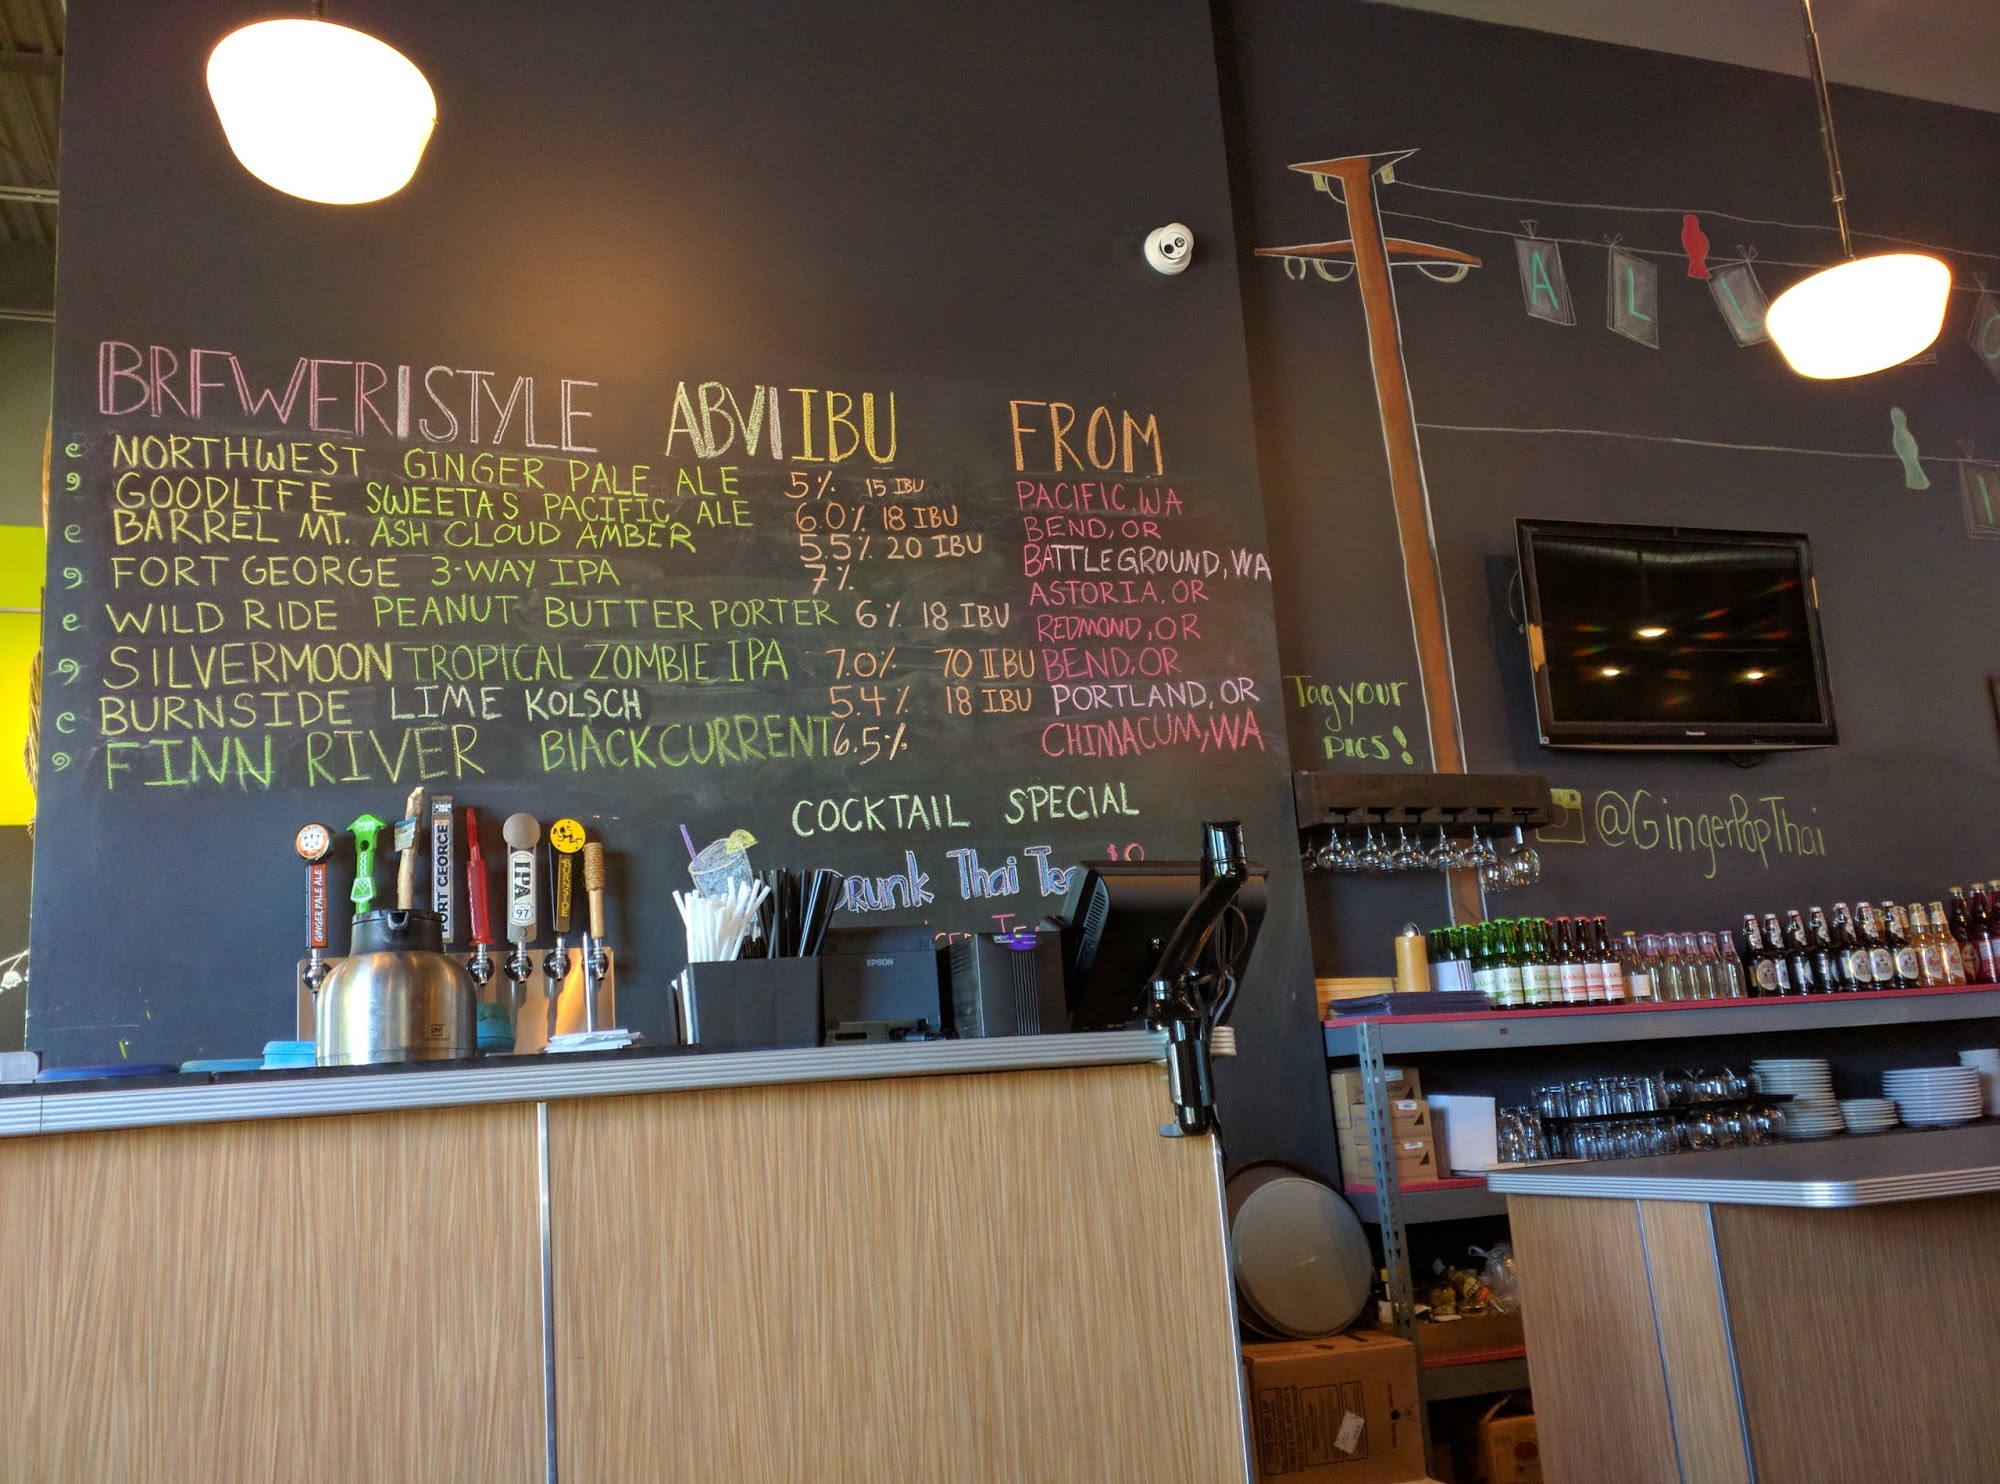 BREWER/STYLE ABV/IBU FROM
NORTHWEST GINGER PALE ALE 5% 15 IBU PACIFIC, WA
GOODLIFE SWEETAS PACIFIC ALE 6.0% 18 IBU BEND, OR
BARREL MT. ASH CLOUD AMBER 5.5% 20 IBU BATTLEGROUND, WA
FORT GEORGE 3-WAY IPA 7% ASTORIA, OR
WILD RIDE PEANUT BUTTER PORTER 6% 18 IBU REDMOND, OR
SILVERMOON TROPICAL ZOMBIE IPA 7.0% 70 IBU BEND, OR
BURNSIDE LIME KOLSCH 5.4% 18 IBU PORTLAND, OR
FINN RIVER BLACKCURRENT 6.5% CHIMACUM, WA
COCKTAIL SPECIAL
Drunk Thai Tea
A L L
Tag your
PICS!
@GingerPopThai
Panasonic
GINGER PALE ALE
FORT GEORGE
IPA
97
EPSON